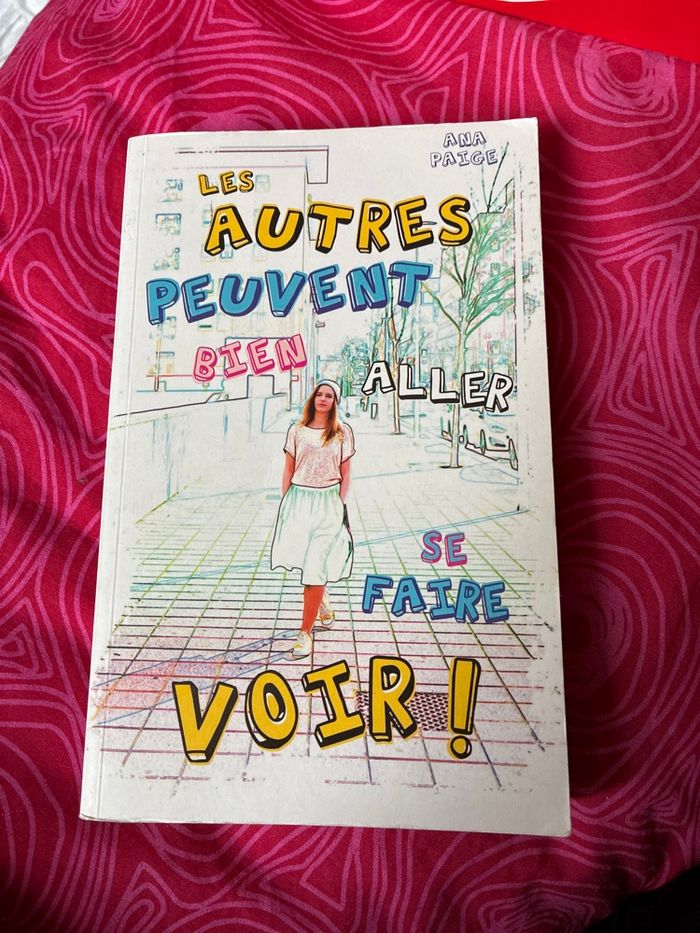 ANA
PAIGE
LES
AUTRES
PEUVENT
BIEN
ALLER
SE
FAIRE
VOIR !